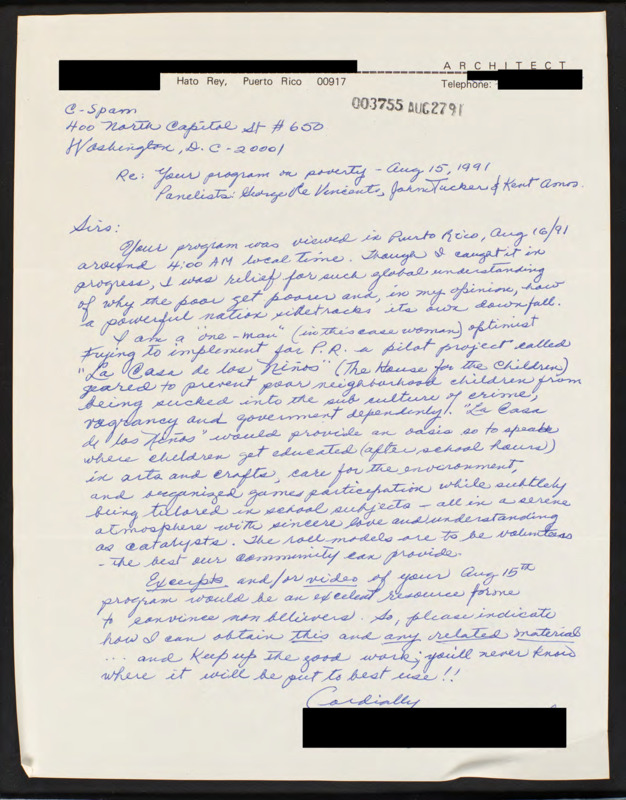 ARCHITECT
Hato Rey, Puerto Rico 00917 Telephone:
003755 AUG2791
C-Spam
400 North Capitol St # 650
Washington, D.C - 20001
Re: Your program on poverty - Aug 15, 1991
Panelists: George De Vincente, John Tucker & Kent Amos.
Sirs:
Your program was viewed in Puerto Rico, Aug 16/91
around 4:00 AM local time. Though I caught it in
progress, I was relief for such global understanding
of why the poor get poorer and, in my opinion, how
a powerful nation sidetracks its own downfall.
I am a "one-man" (in this case woman) optimist
trying to implement for P.R. a pilot project called
"La Casa de los Niños" (The House for the Children)
geared to prevent poor neighborhood children from
being sucked into the sub culture of crime,
vagrancy and government dependenly. "La Casa
de los Niños" would provide an oasis so to speak
where children get educated (after school hours)
in arts and crafts, care for the environment,
and organized games participation while subtlely
being tutored in school subjects - all in a serene
atmosphere with sincere love and understanding
as catalysts. The roll models are to be voluntess
- the best our community can provide.
Excerpts and/or video of your Aug 15th
program would be an excelent resource for me
to convince non blievers. So, please indicate
how I can obtain this and any related material
... and keep up the good work; you'll never know
where it will be put to best use!!
Cordially